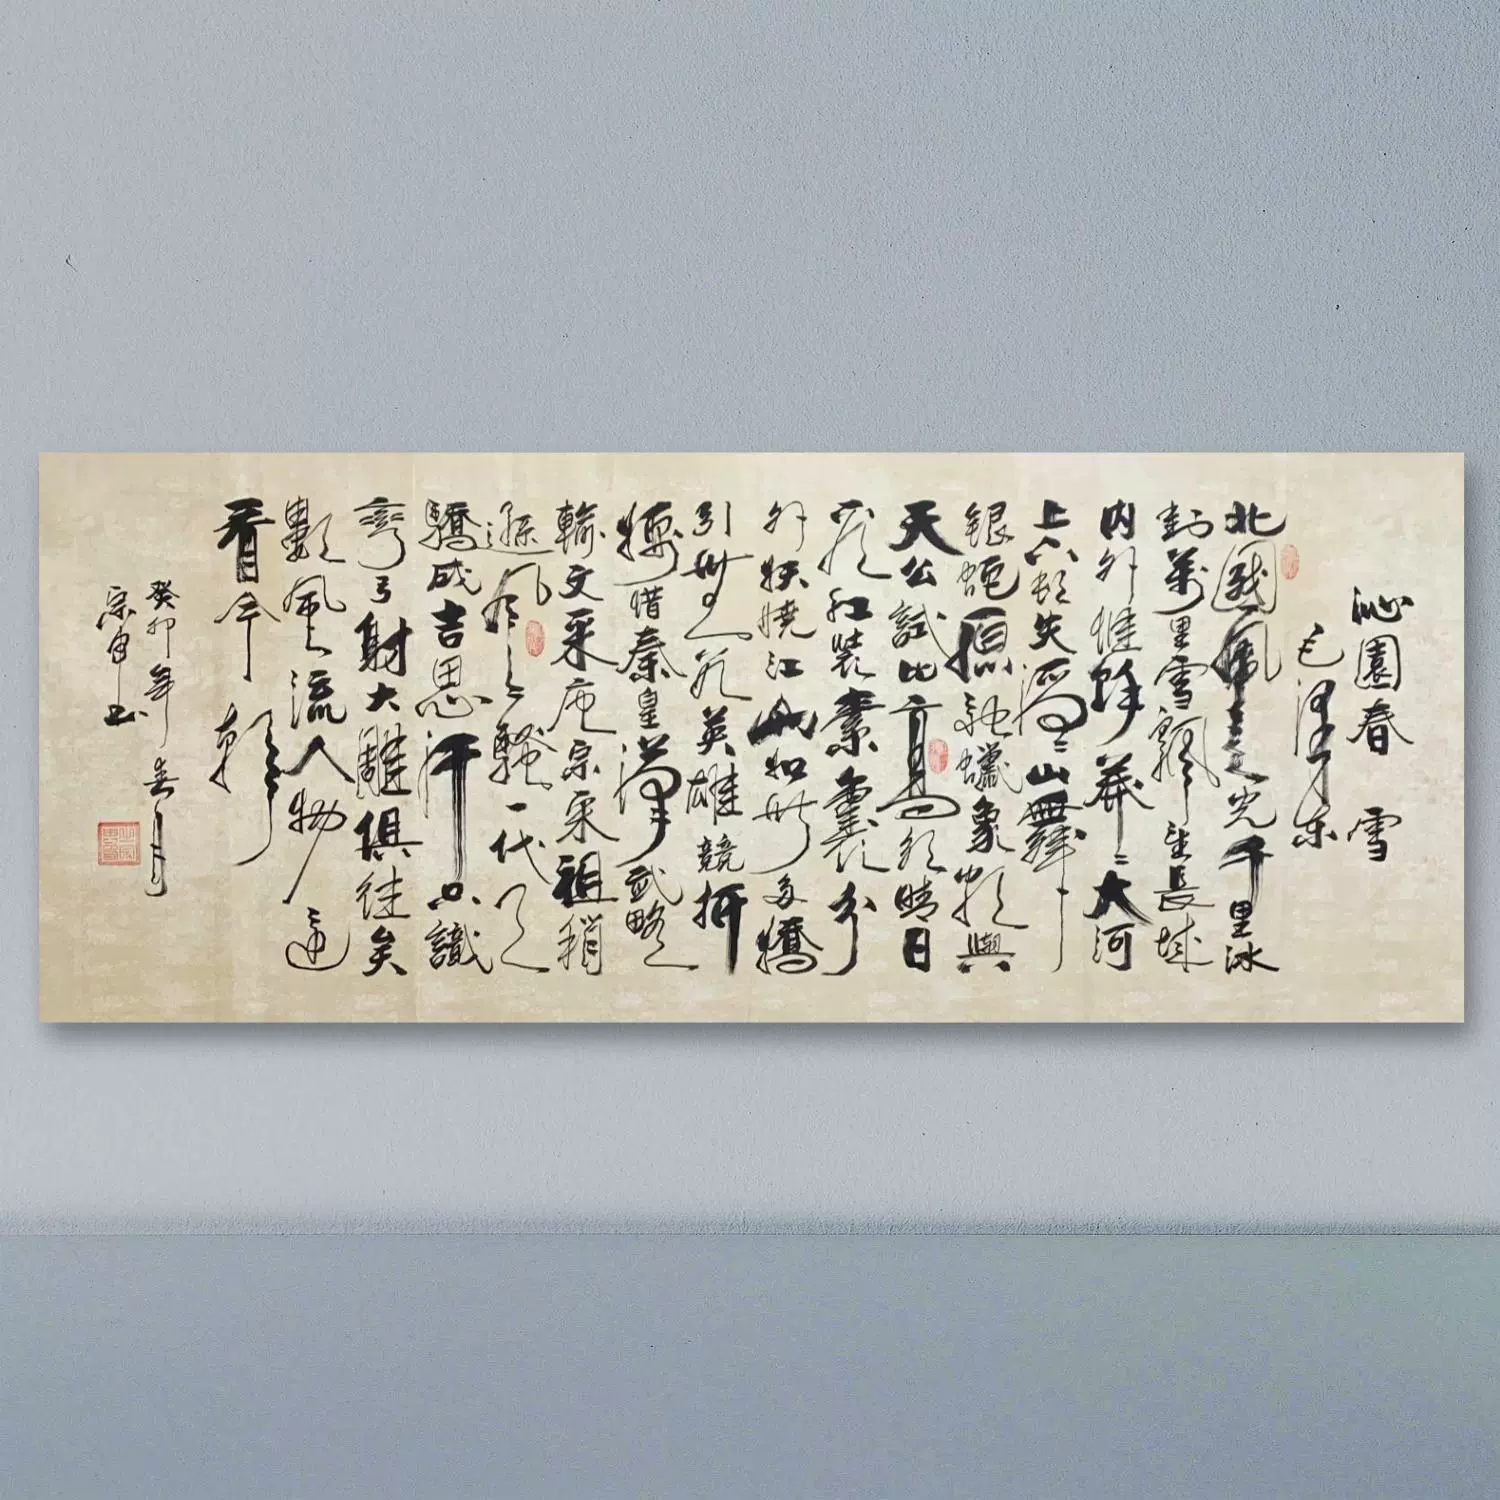 沁園春 雪
毛泽东
北國風光千里冰
封萬里雪飄望長城
内外惟餘莽莽大河
上下頓失滔滔山舞
銀蛇原馳蠟象欲與
天公試比高須晴日
看紅裝素裹分
外妖嬈江山如此多嬌
引無數英雄競折
腰惜秦皇漢武略
輸文采唐宗宋祖稍
遜風騷一代天
驕成吉思汗只識
彎弓射大雕俱往矣
數風流人物還
看今朝
癸卯年春月
宗 书